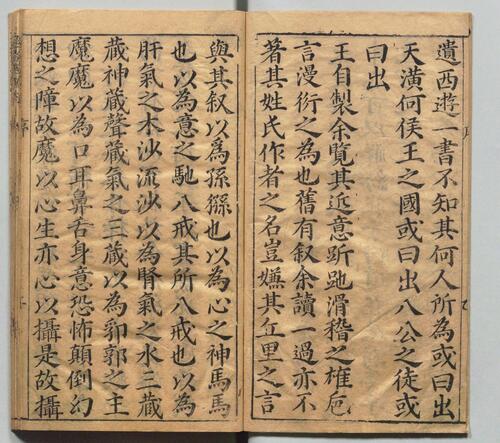 遺西遊一書不知其何人所為或曰出
天潢何侯王之國或曰出八公之徒或
曰出
王自製余覽其近意跅跎滑稽之雄巵
言漫衍之為也舊有叙余讀一過亦不
著其姓氏作者之名豈嫌其丘里之言
與其叙以為孫猻也以為心之神馬馬
也以為意之馳八戒其所八戒也以為
肝氣之木沙流沙以為腎氣之水三藏
藏神藏聲藏氣之三藏以為郛郭之主
魔魔以為口耳鼻舌身意恐怖顛倒幻
想之障故魔以心生亦心以攝是故攝
序